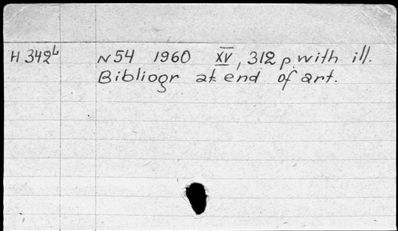 H 342L N 54 1960 XV, 312 p. with ill.
Bibliogr at end of art.